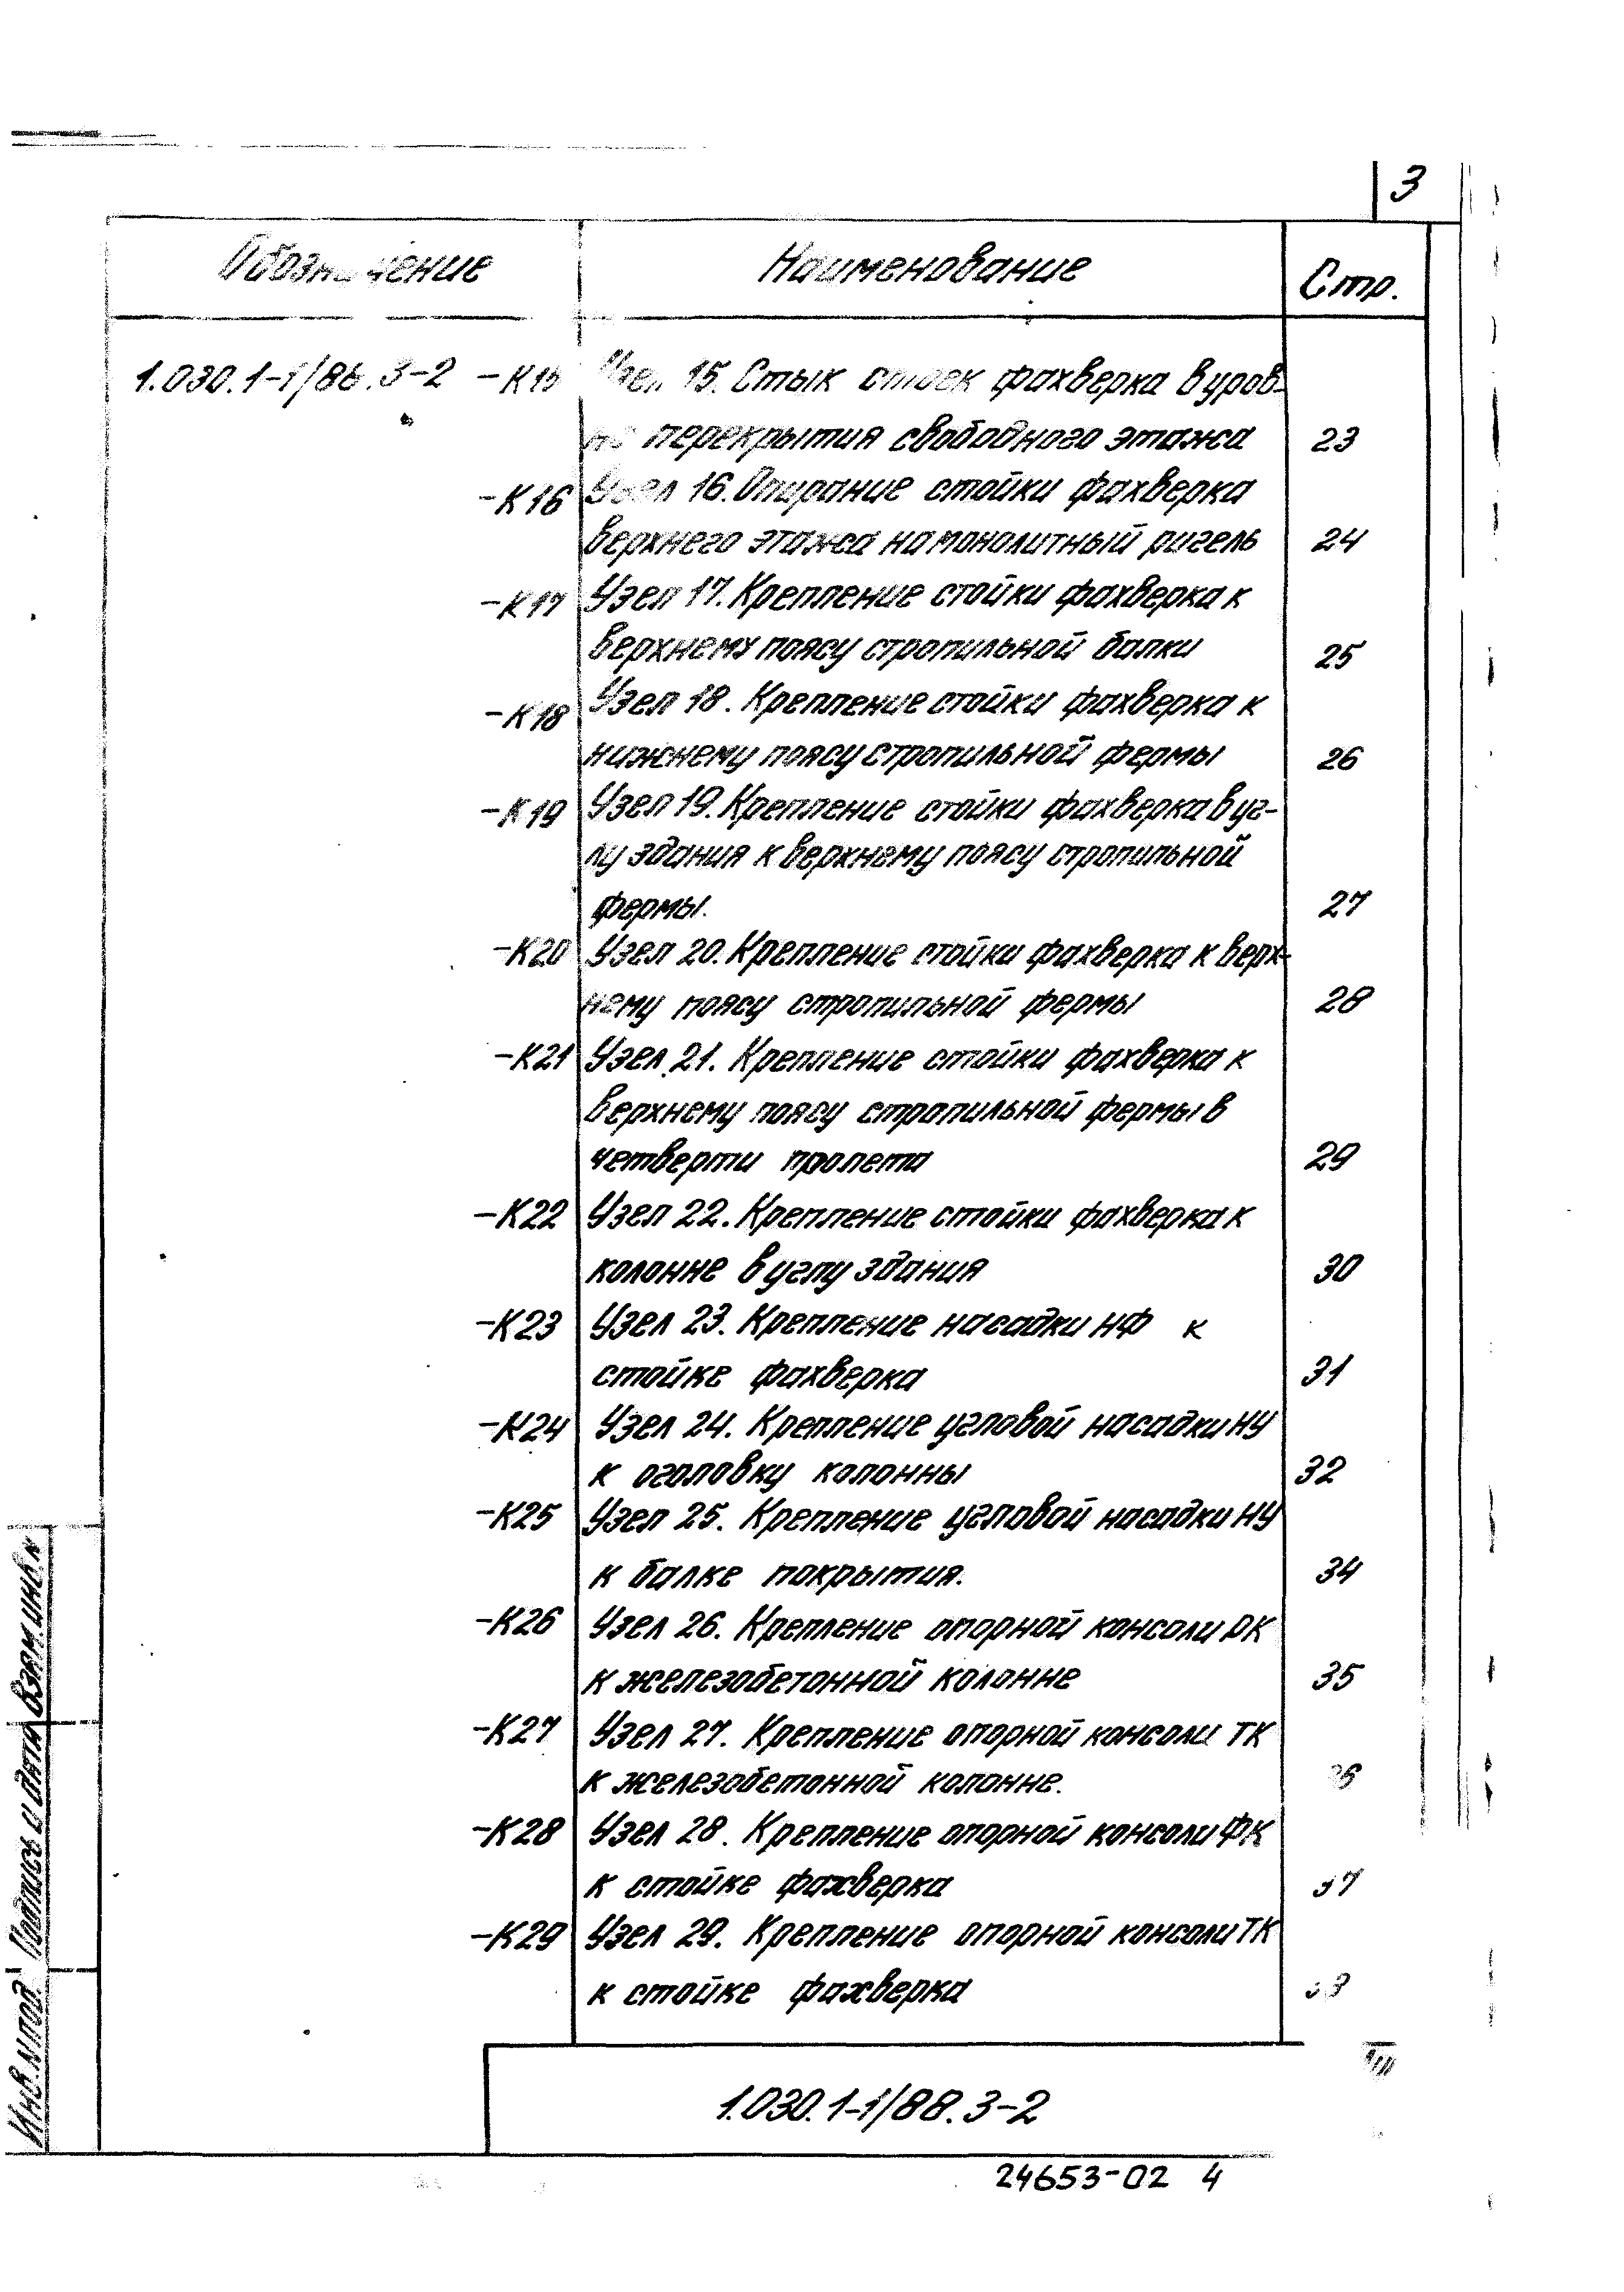 3
Обозначение Наименование Стр.
1.030.1-1/88.3-2 -К15 Узел 15. Стык стоек фахверка в уров-
не перекрытия свободного этажа 23
-К16 Узел 16. Опирание стойки фахверка
верхнего этажа на монолитный ригель 24
-К17 Узел 17. Крепление стойки фахверка к
верхнему поясу стропильной балки 25
-К18 Узел 18. Крепление стойки фахверка к
нижнему поясу стропильной фермы 26
-К19 Узел 19. Крепление стойки фахверка в уг-
лу здания к верхнему поясу стропильной
фермы. 27
-К20 Узел 20. Крепление стойки фахверка к верх-
нему поясу стропильной фермы 28
-К21 Узел 21. Крепление стойки фахверка к
верхнему поясу стропильной фермы в
четверти пролета 29
-К22 Узел 22. Крепление стойки фахверка к
колонне в углу здания 30
-К23 Узел 23. Крепление насадки НФ к
стойке фахверка 31
-К24 Узел 24. Крепление угловой насадки НУ
к оголовку колонны 32
-К25 Узел 25. Крепление угловой насадки НУ
к балке покрытия. 34
-К26 Узел 26. Крепление опорной консоли РК
к железобетонной колонне 35
-К27 Узел 27. Крепление опорной консоли ТК
к железобетонной колонне.
-К28 Узел 28. Крепление опорной консоли ФК
к стойке фахверка 37
-К29 Узел 29. Крепление опорной консоли ТК
к стойке фахверка
Инв.N под. Подпись и дата Взам.инв.N
1.030.1-1/88.3-2
24653-02 4